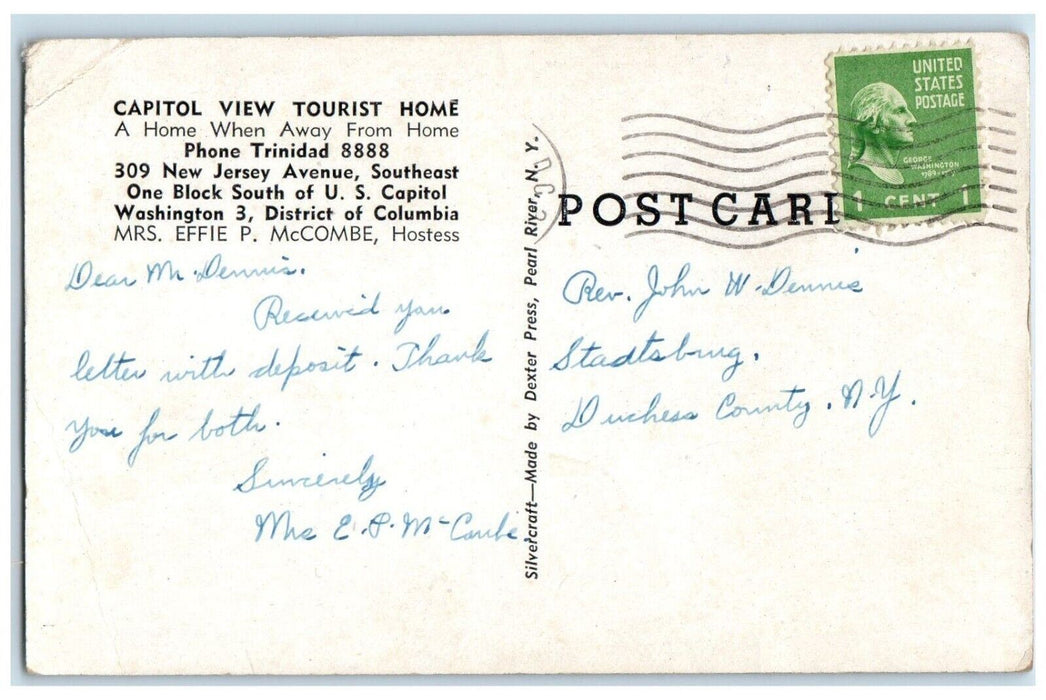 CAPITOL VIEW TOURIST HOME
A Home When Away From Home
Phone Trinidad 8888
309 New Jersey Avenue, Southeast
One Block South of U. S. Capitol
Washington 3, District of Columbia
MRS. EFFIE P. McCOMBE, Hostess
Dear Mr. Dennis.
Received you
letter with deposit. Thank
you for both.
Sincerely
Mrs E. P. McCombe
Silvercraft—Made by Dexter Press, Pearl River, N. Y.
D.C.
POST CARD
UNITED
STATES
POSTAGE
GEORGE
WASHINGTON
1 CENT 1
Rev. John W. Dennis
Stadtsburg.
Duchess County. N.Y.